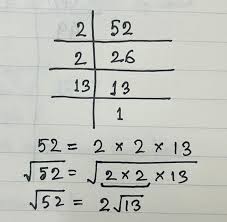 2 | 52
2 | 26
13 | 13
| 1
52 = 2 × 2 × 13
√52 = √2 × 2 × 13
√52 = 2√13